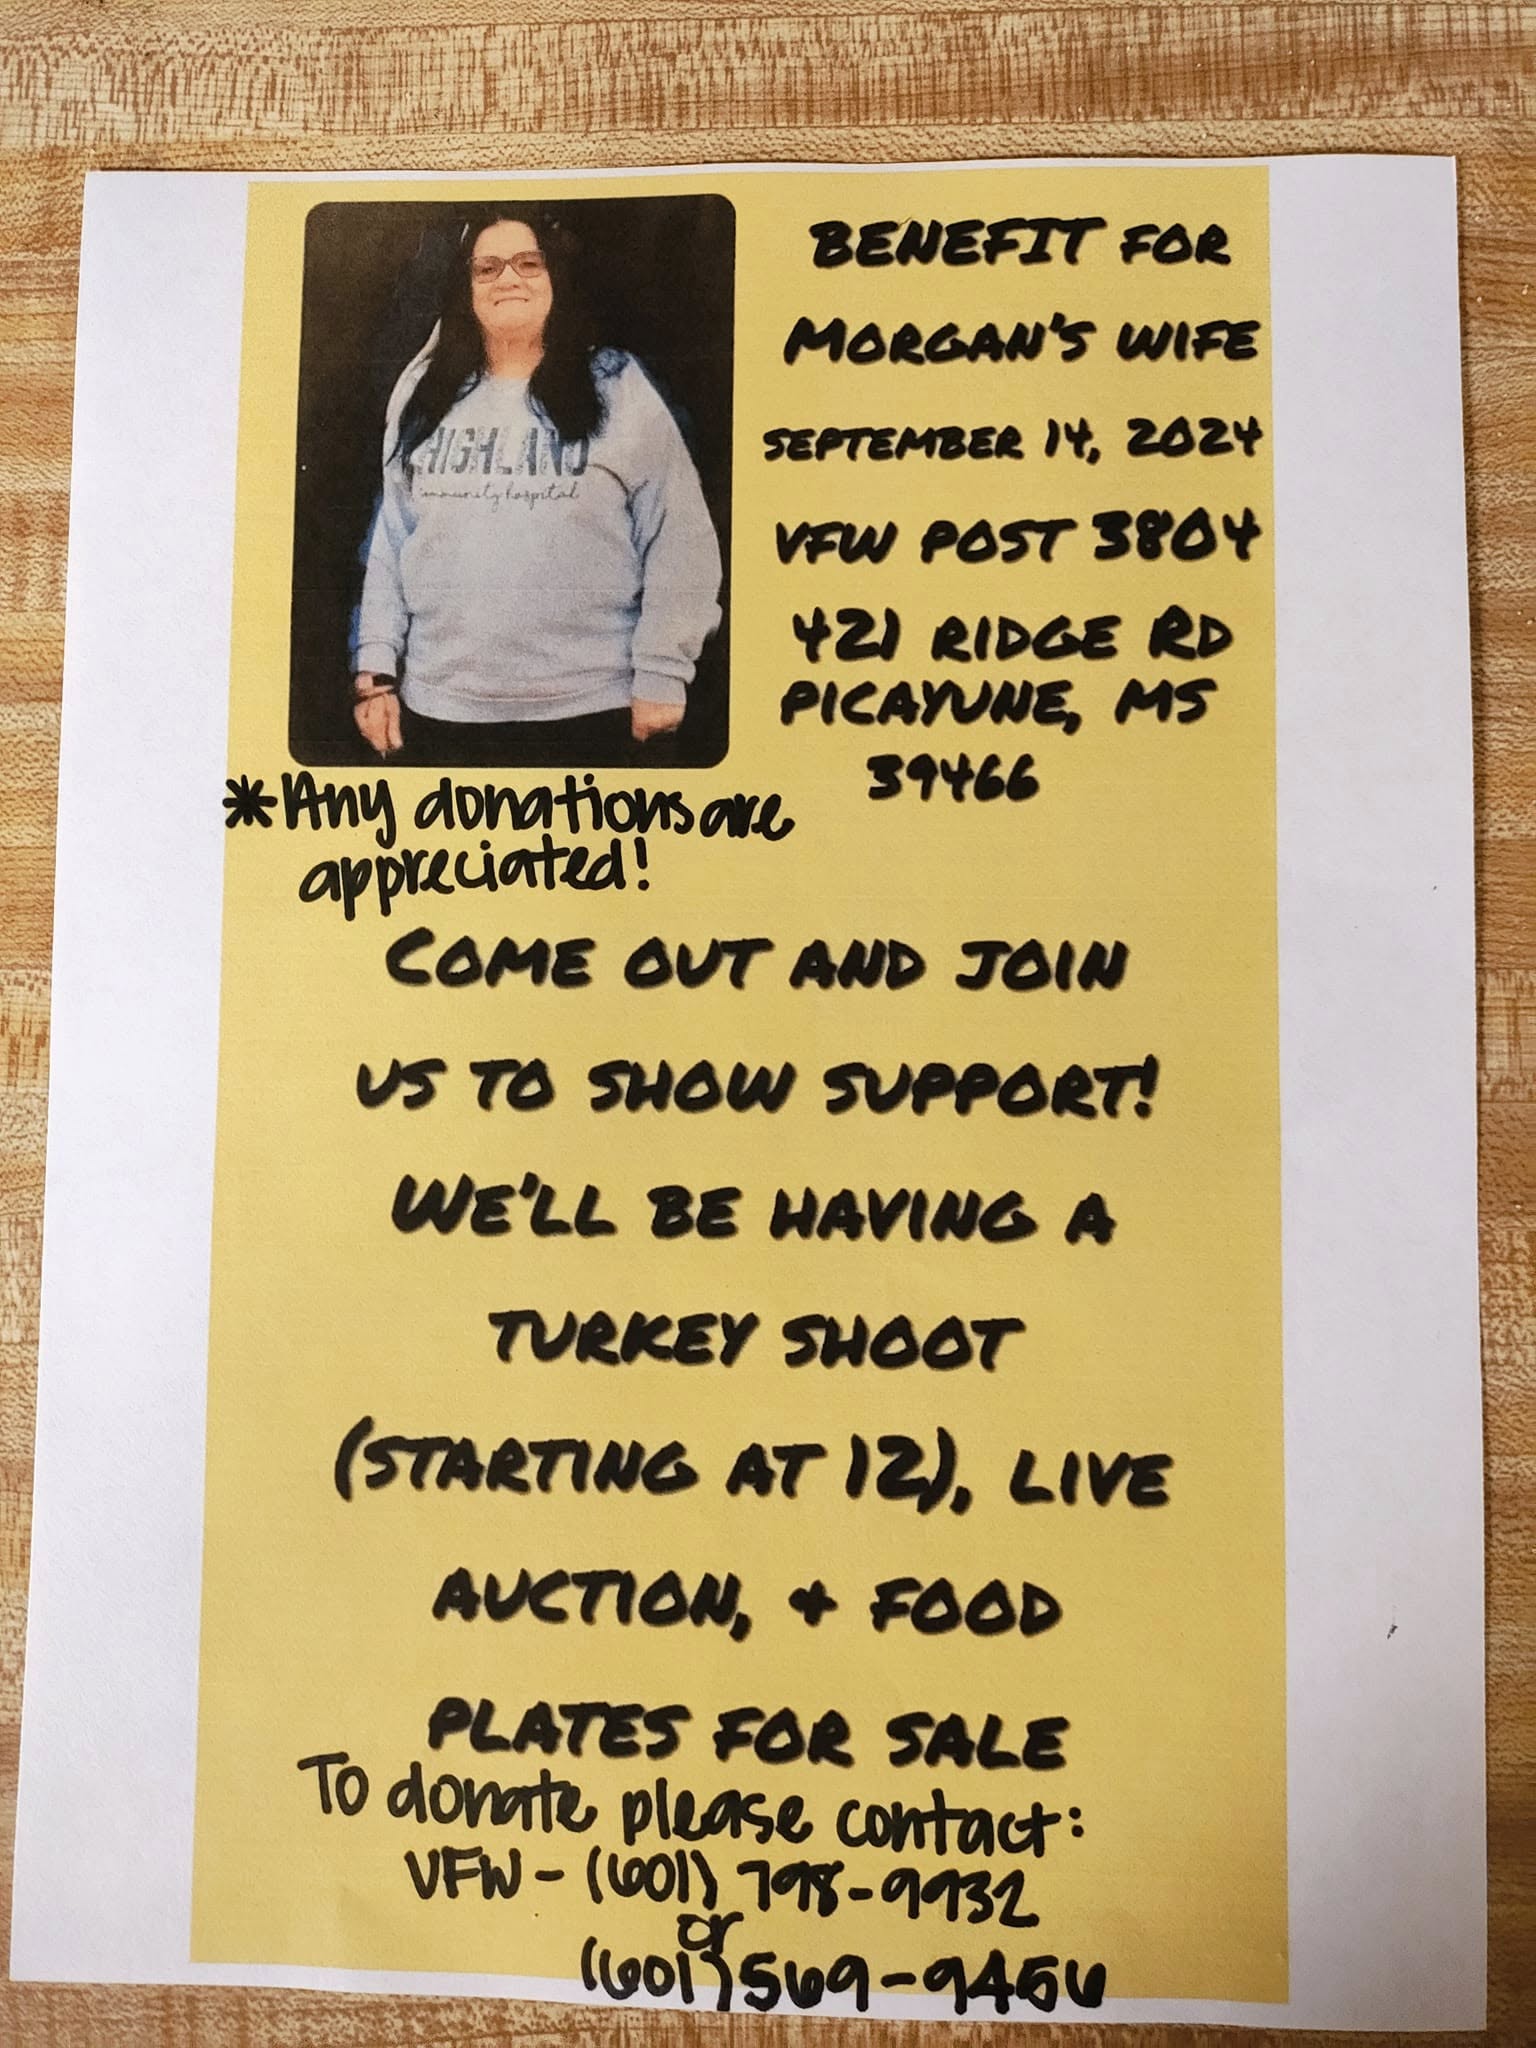 BENEFIT FOR
MORGAN'S WIFE
SEPTEMBER 14, 2024
VFW POST 3804
421 RIDGE RD
PICAYUNE, MS
39466
HIGHLAND
community hospital
*Any donations are
appreciated!
COME OUT AND JOIN
US TO SHOW SUPPORT!
WE'LL BE HAVING A
TURKEY SHOOT
(STARTING AT 12), LIVE
AUCTION, & FOOD
PLATES FOR SALE
To donate please contact:
VFW - (601) 798-9932
or
(601) 569-9456